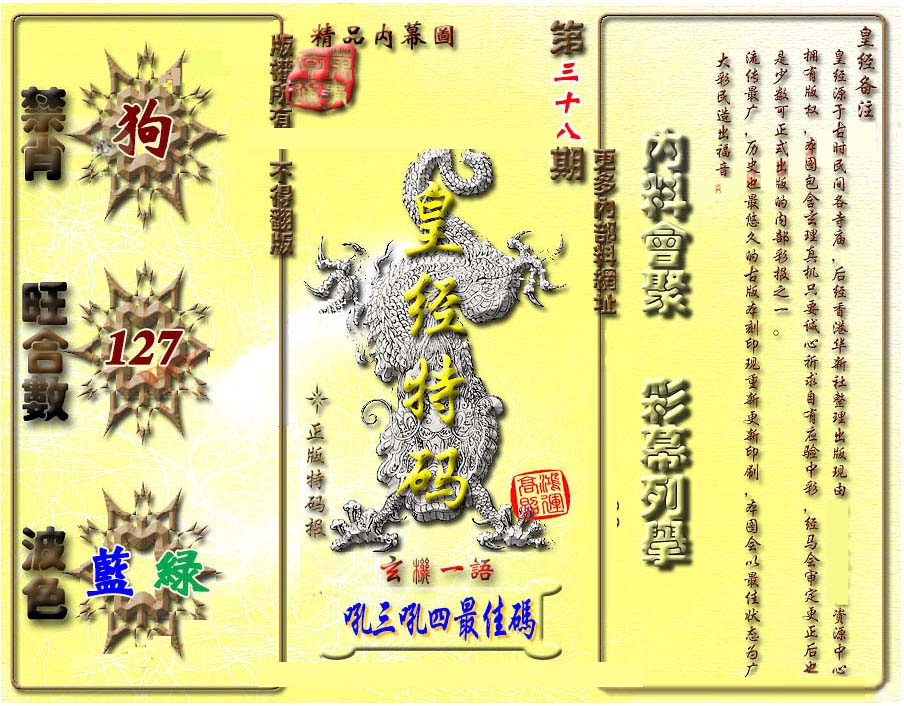 禁肖
狗
旺合數
127
波色
藍 綠
版權所有
不得翻版
精品内幕圖
第三十八期
皇经特码
正版特码报
鴻運高照
玄機一語
吼三吼四最佳碼
更多内部料網址
内料會聚
彩幕列舉
皇经备注
皇经源于古时民间各寺庙,后经香港华新社整理出版现由 资源中心
拥有版权,本图包含玄理真机只要诚心祈求自有应验中彩,经马会审定更正后也
是少数可正式出版的内部彩报之一。
流传最广,历史也最悠久的古版本刻印现重新更新印刷,本图会以最佳状态为广
大彩民造出福音